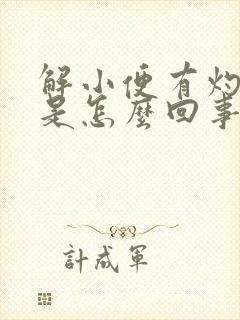 解小便有灼
是怎麼回事
計成軍